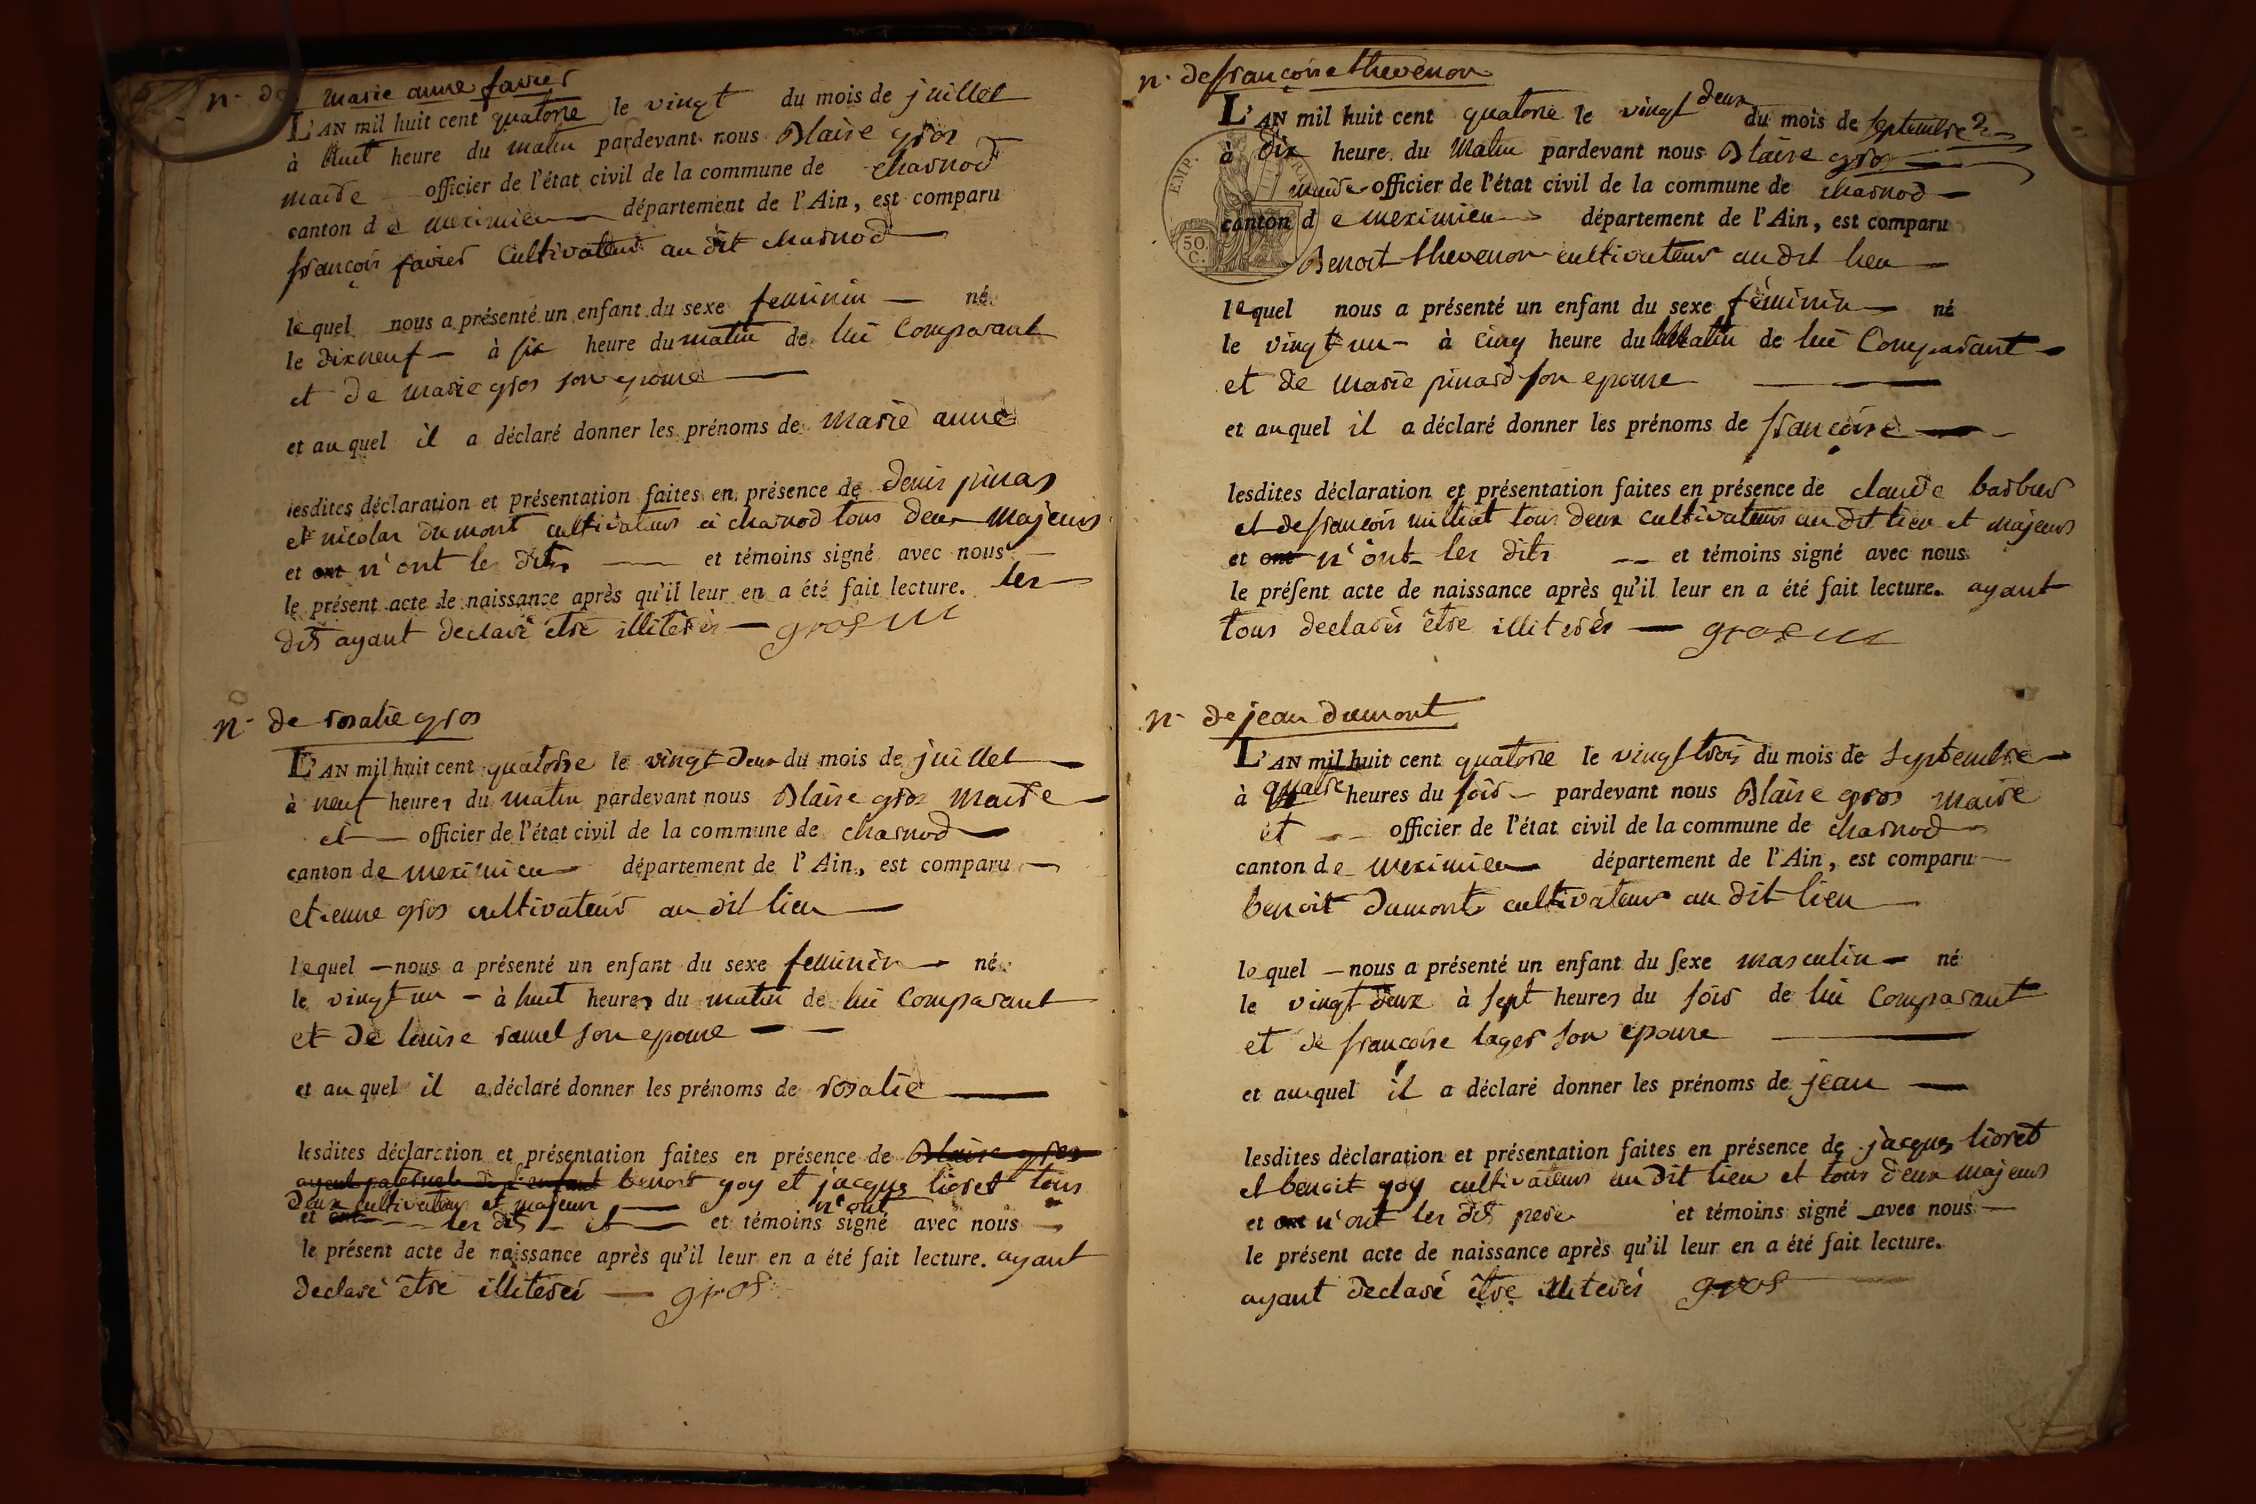 n. de marie anne favier
L'AN mil huit cent quatorse le vingt du mois de juillet
à huit heure du matin pardevant nous Blaise gros
maire officier de l'état civil de la commune de charnod
canton de meximieu département de l'Ain, est comparu
françois favier cultivateur au dit charnod
lequel nous a présenté un enfant du sexe feminin né
le dixneuf à six heure du matin de lui comparant
et de marie gros son epouse
et auquel il a déclaré donner les prénoms de marie anne
lesdites déclaration et présentation faites en présence de denis
et nicolas dumont cultivateurs à charnod tous deux majeurs
et ont n'ont les dits et témoins signé avec nous
le présent acte de naissance après qu'il leur en a été fait lecture. les
dits ayant declaré être illiterés gros
n. de rosalie gros
L'AN mil huit cent quatorse le vingt deux du mois de juillet
à neuf heures du matin pardevant nous Blaise gros maire
et officier de l'état civil de la commune de charnod
canton de meximieu département de l'Ain, est comparu
etienne gros cultivateur au dit lieu
lequel nous a présenté un enfant du sexe feminin né
le vingt un à huit heures du matin de lui comparant
et de louise ramel son epouse
et auquel il a déclaré donner les prénoms de rosalie
lesdites déclaration et présentation faites en présence de Blaise gros
ayeul paternel de l'enfant benoit goy et jacques lioret tous
deux cultivateurs et majeurs n'ont
et ont les dits et témoins signé avec nous
le présent acte de naissance après qu'il leur en a été fait lecture. ayant
declaré être illiterés gros
n. de françoise thevenon
L'AN mil huit cent quatorse le vingt deux du mois de septembre
à dix heure du matin pardevant nous Blaise gros
maire officier de l'état civil de la commune de charnod
canton de meximieu département de l'Ain, est comparu
EMP.
50.
C.
Benoit thevenon cultivateur au dit lieu
lequel nous a présenté un enfant du sexe féminin né
le vingt un à cinq heure du matin de lui comparant
et de marie pinard son epouse
et auquel il a déclaré donner les prénoms de françoise
lesdites déclaration et présentation faites en présence de claude barbier
et de françois milliat tous deux cultivateurs au dit lieu et majeurs
et ont n'ont les dits et témoins signé avec nous
le présent acte de naissance après qu'il leur en a été fait lecture. ayant
tous declarés être illiterés gros
n. de jean dumont
L'AN mil huit cent quatorse le vingt trois du mois de septembre
à quatre heures du soir pardevant nous Blaise gros maire
et officier de l'état civil de la commune de charnod
canton de meximieu département de l'Ain, est comparu
benoit dumont cultivateur au dit lieu
lequel nous a présenté un enfant du sexe masculin né
le vingt deux à sept heures du soir de lui comparant
et de françoise lager son epouse
et auquel il a déclaré donner les prénoms de jean
lesdites déclaration et présentation faites en présence de jacques lioret
et benoit goy cultivateurs au dit lieu et tous deux majeurs
et ont n'ont les dits pere et témoins signé avec nous
le présent acte de naissance après qu'il leur en a été fait lecture.
ayant declaré être illiterés gros